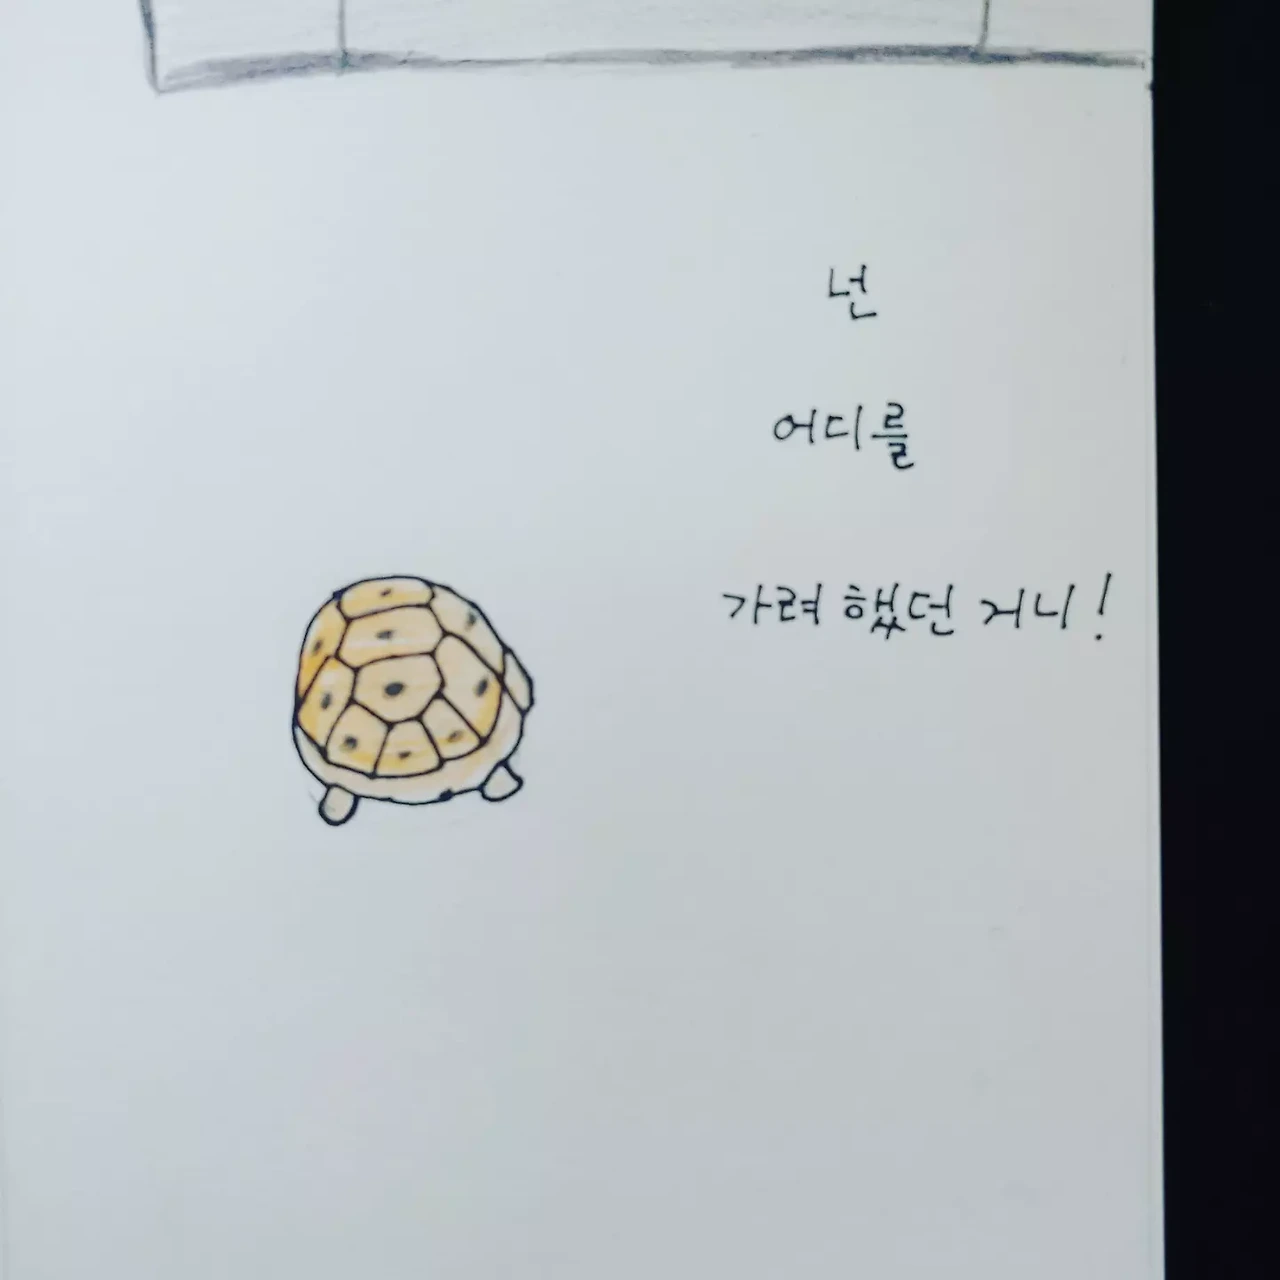 넌
어디를
가려 했던 거니!